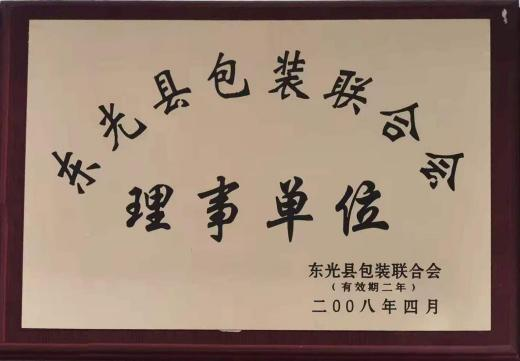 东光县包装联合会
理事单位
东光县包装联合会
（有效期二年）
二00八年四月